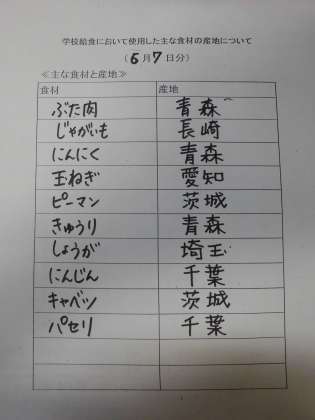 学校給食において使用した主な食材の産地について
(6月7日分)
≪主な食材と産地≫
食材 産地
ぶた肉 青森
じゃがいも 長崎
にんにく 青森
玉ねぎ 愛知
ピーマン 茨城
きゅうり 青森
しょうが 埼玉
にんじん 千葉
キャベツ 茨城
パセリ 千葉